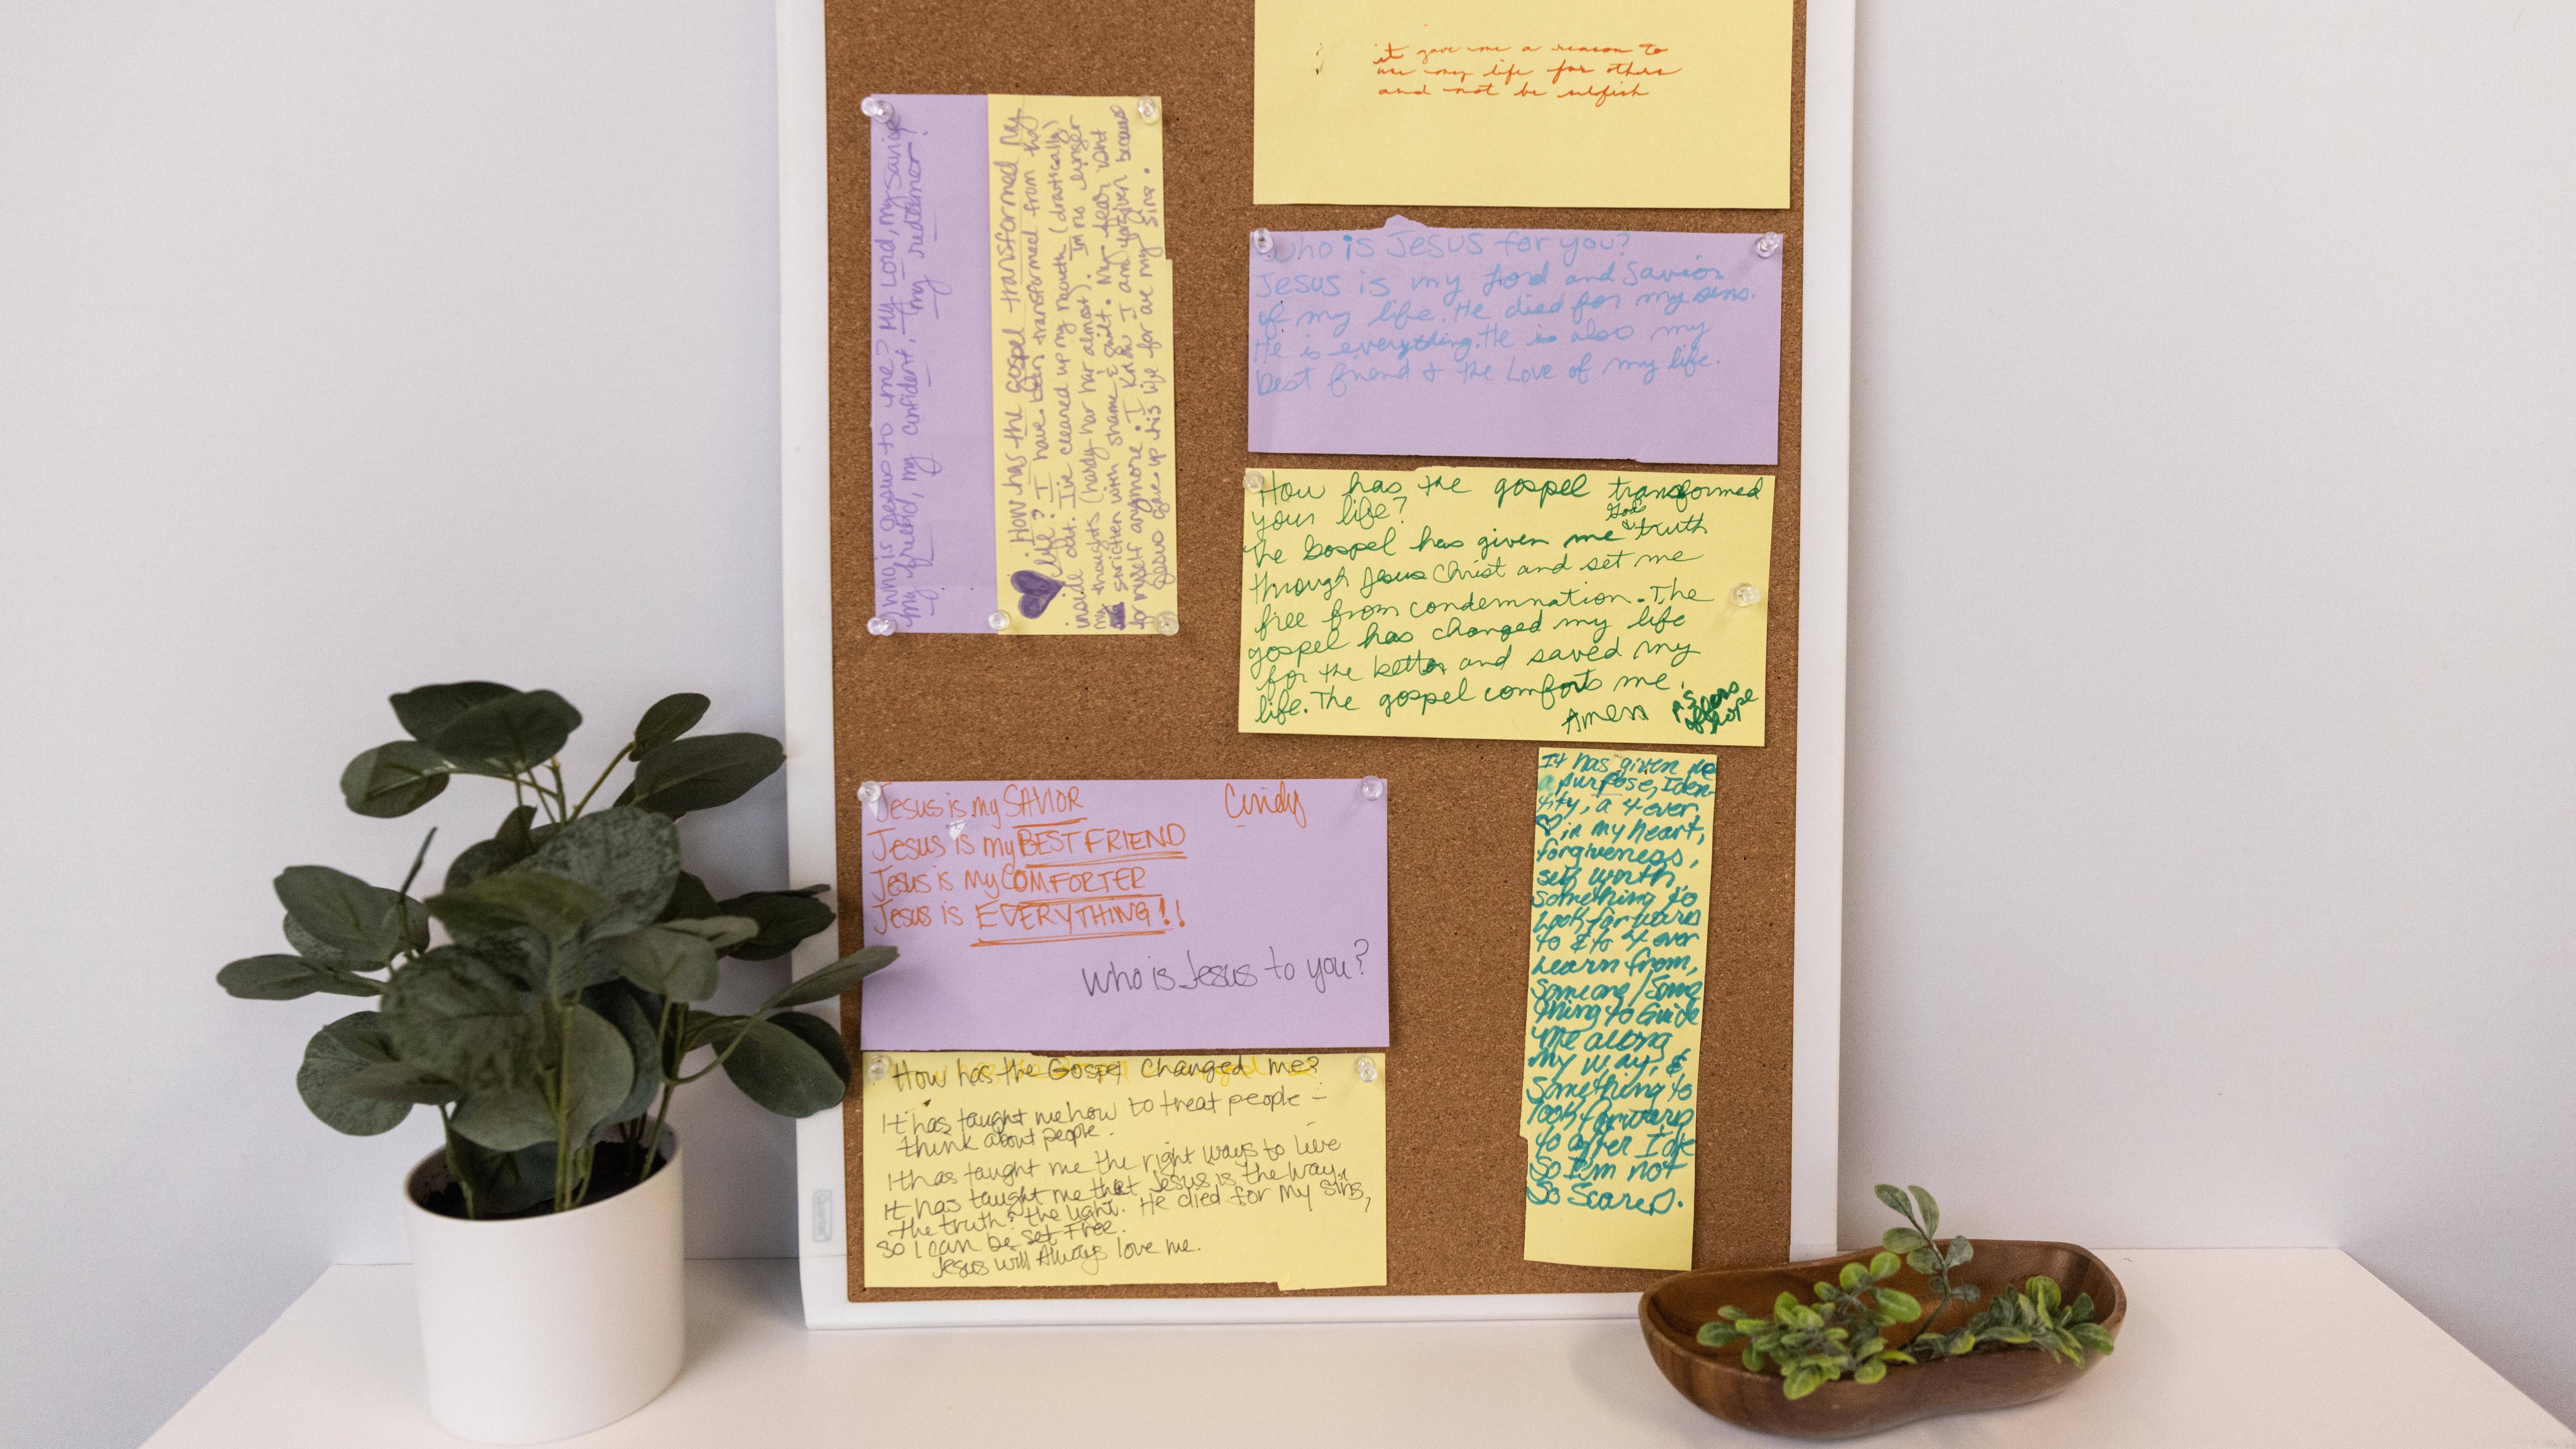 it gave me a reason to
use my life for others
and not be selfish
Who is Jesus to me? My Lord, my Savior
my friend, my confident, my redeemer!
How has the gospel transformed my
life? I have been transformed from the
inside out. I've cleared up my mouth (drastically)
my thoughts (hardy har har almost). Im no longer
stricken with shame & guilt. My fear isnt
for myself anymore. I know I am forgiven because
Jesus gave up his life for are my sins.
Who is Jesus for you?
Jesus is my Lord and Savior
of my life. He died for my sins.
He is everything. He is also my
best friend & the Love of my life.
How has the gospel transformed
your life?
The Gospel has given me God's truth
through Jesus Christ and set me
free from condemnation. The
gospel has changed my life
for the better and saved my
life. The gospel comforts me.
Amen
of hope
Jesus is my SAVIOR
Cindy
Jesus is my BEST FRIEND
Jesus is my COMFORTER
Jesus is EVERYTHING!!
Who is Jesus to you?
How has the Gospel Changed me?
It has taught me how to treat people -
think about people.
It has taught me the right ways to live
It has taught me that Jesus is the way,
the truth & the light. He died for my sins,
so I can be set Free.
Jesus will Always love me.
It has given me
a purpose, Iden-
tity, a 4-ever
♡ in my heart,
forgiveness,
self worth
Something to
Look forward
to & to 4-ever
Learn from,
Someone/Some
thing to Guide
me along
My way, &
Something to
look forward
to after I die
So I'm not
So Scared.
Quartet